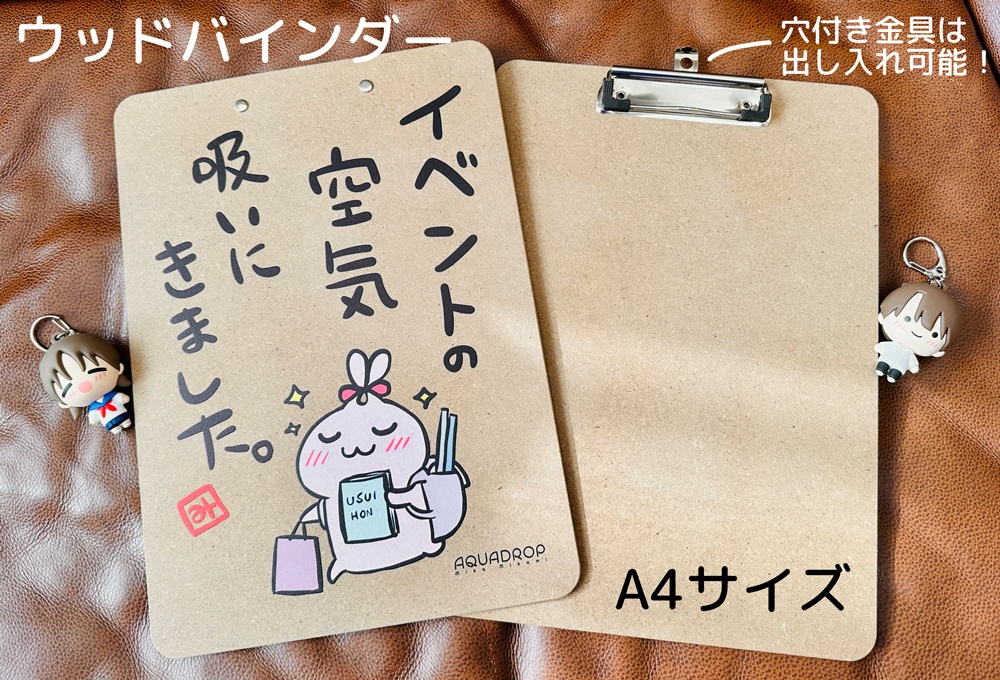 ウッドバインダー
穴付き金具は
出し入れ可能！
イベントの
空気
吸いに
きました。
USUI
HON
AQUADROP
miko mikami
A4サイズ